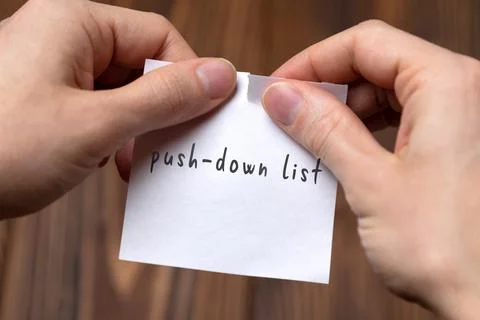 push-down list